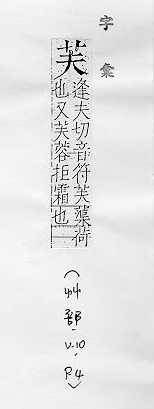 字彙
芙
逢夫切音符芙蕖荷
也又芙蓉拒霜也
(艸部·V.10·P.4)